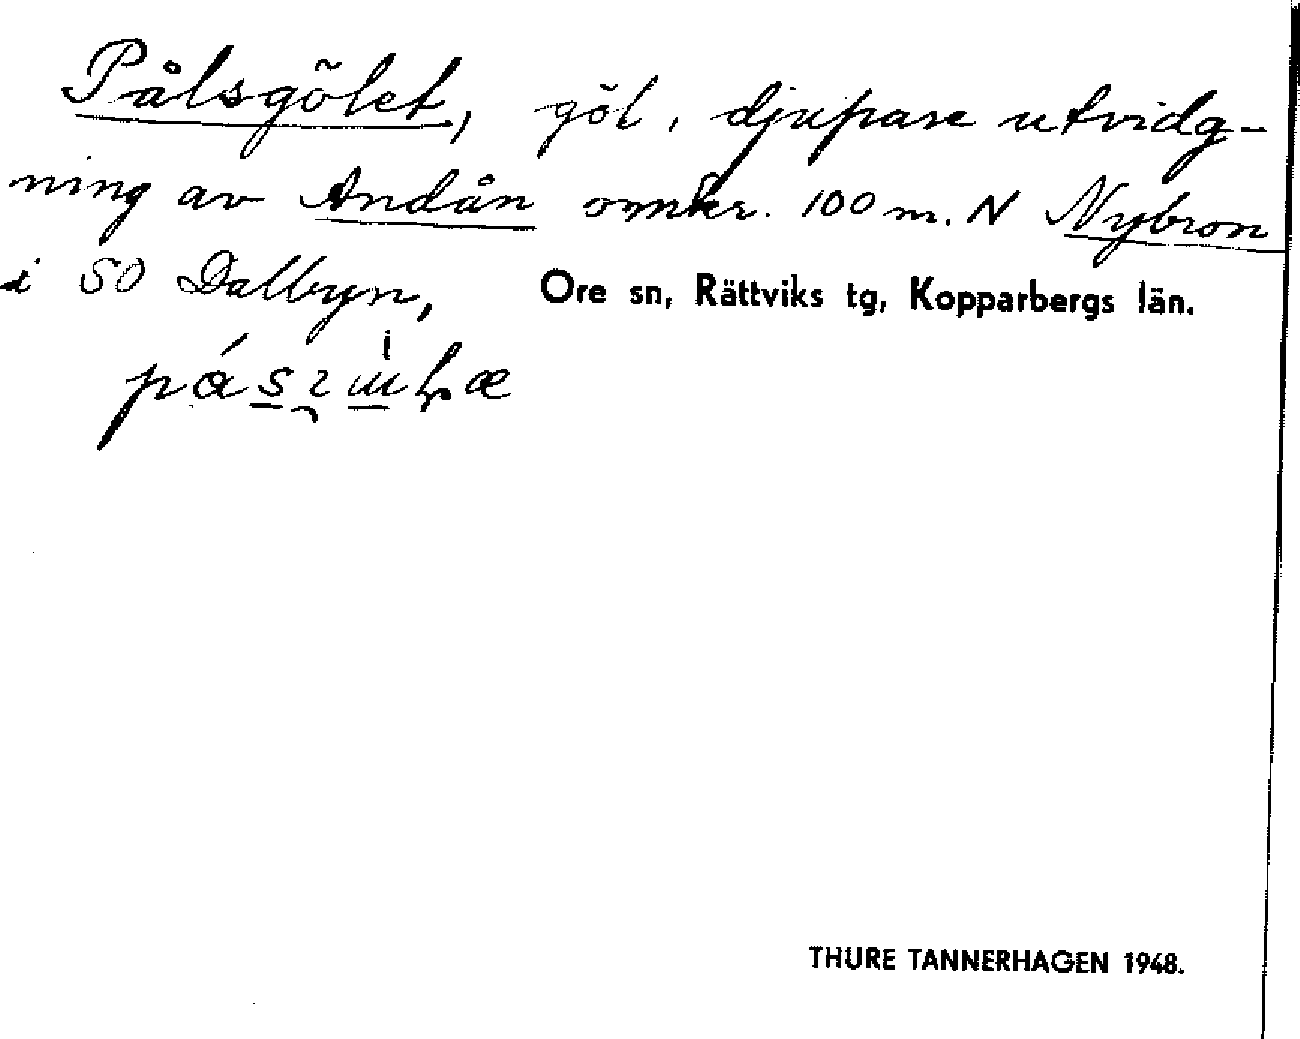 Pålsgölet, göl, djupare utvidg-
ning av Andån omkr. 100 m. N Nybron
i SO Dalbyn, Ore sn, Rättviks tg, Kopparbergs län.
THURE TANNERHAGEN 1948.